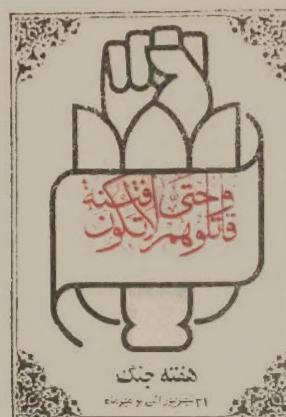 وقاتلوهم حتى لاتكون فتنة
هفته جنگ
شهریور الی مهرماه